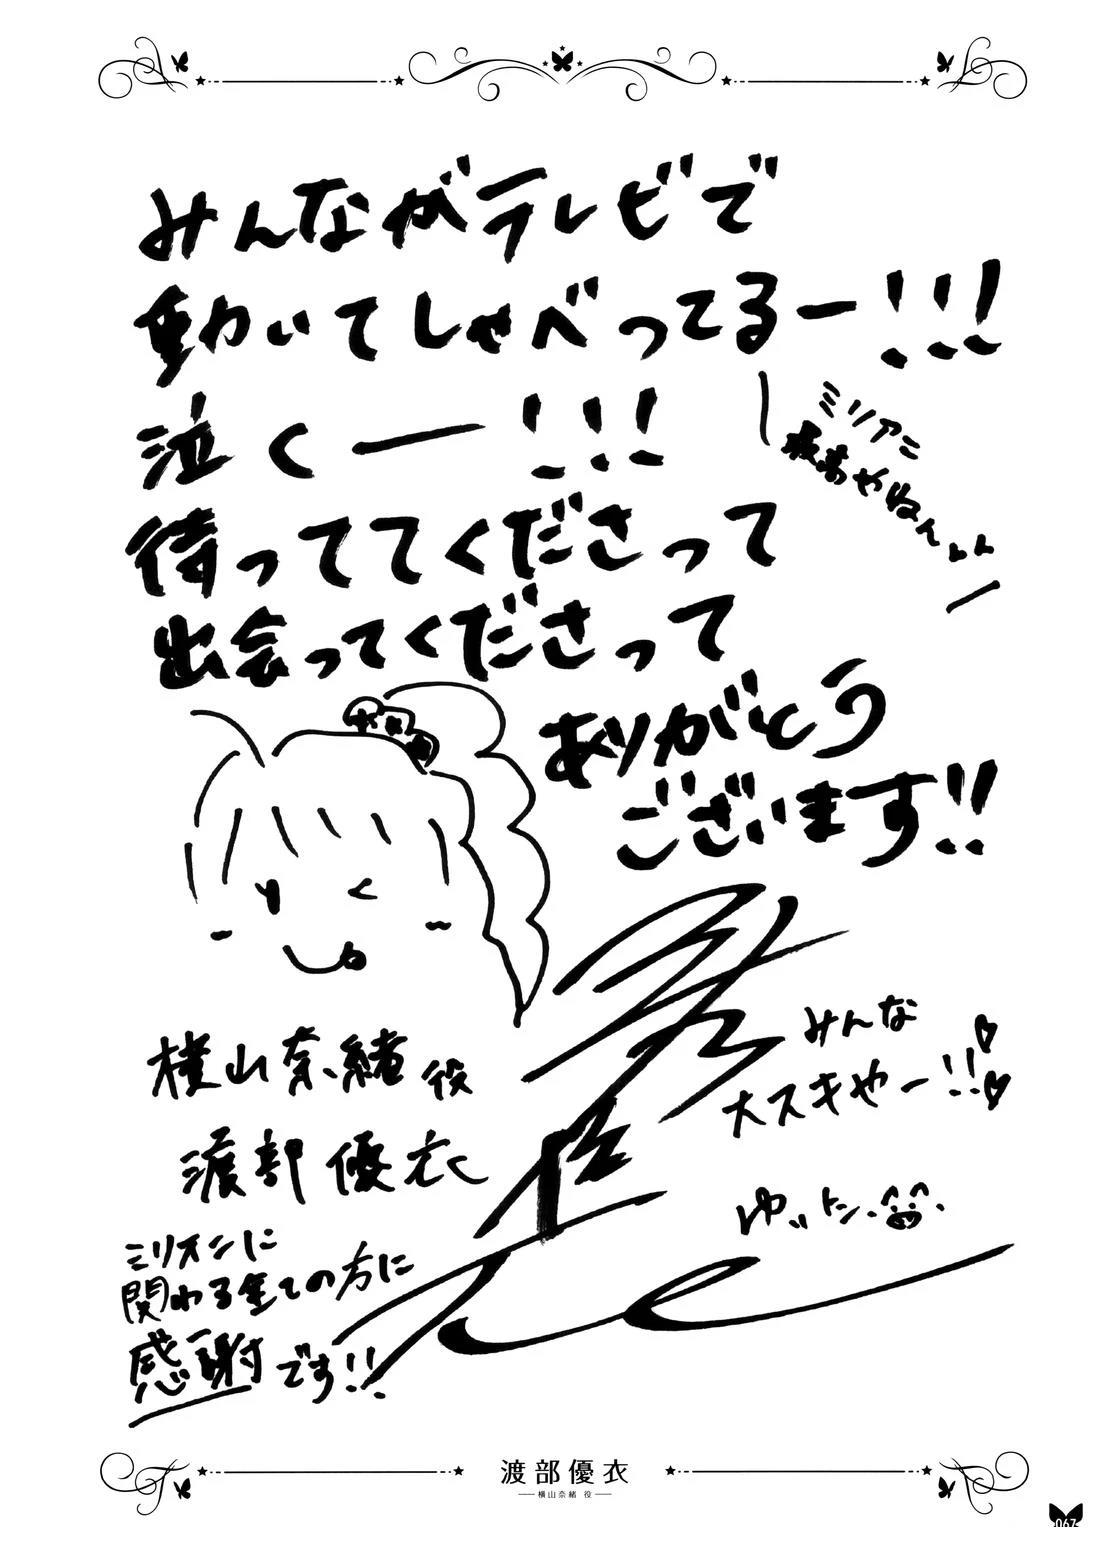 みんながテレビで
動いてしゃべってるー!!!
泣くー!!!
ミリアニ
最高やねんいい
待っててくださって
出会ってくださって
ありがとう
ございます!!
横山奈緒役
渡部優衣
みんな
大スキやー!!
ゆいトン
ミリオンに
関わる全ての方に
感謝です!!
渡部優衣
横山奈緒 役
067